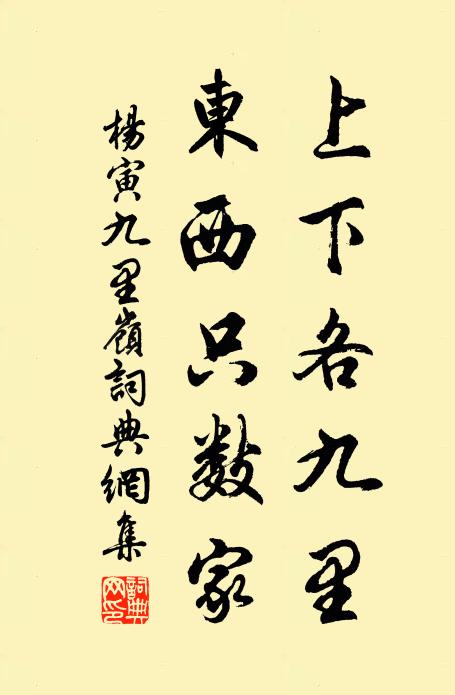 上下各九里
東西只数家
楊寅九里嶺詞典網集
詞典網印